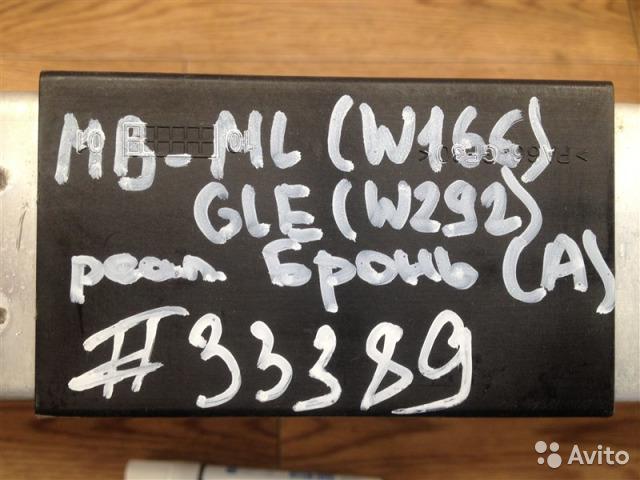 MB-ML (W166)
GLE (W292)
реал Бронь (A)
#33389
Avito